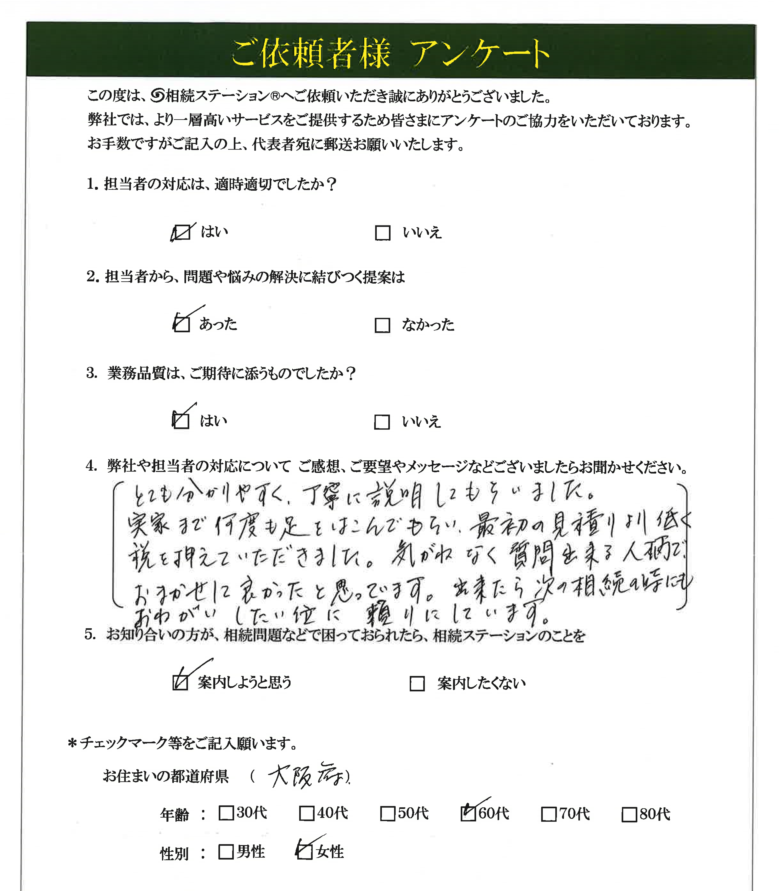 ご依頼者様 アンケート
この度は、相続ステーション®へご依頼いただき誠にありがとうございました。
弊社では、より一層高いサービスをご提供するため皆さまにアンケートのご協力をいただいております。
お手数ですがご記入の上、代表者宛に郵送お願いいたします。
1. 担当者の対応は、適時適切でしたか？
☑ はい □ いいえ
2. 担当者から、問題や悩みの解決に結びつく提案は
☑ あった □ なかった
3. 業務品質は、ご期待に添うものでしたか？
☑ はい □ いいえ
4. 弊社や担当者の対応について ご感想、ご要望やメッセージなどございましたらお聞かせください。
とても分かりやすく、丁寧に説明してもらいました。
実家まで何度も足をはこんでもらい、最初の見積りより低く
税を押えていただきました。気がねなく質問出来る人柄で、
おまかせして良かったと思っています。出来たら次の相続の時にも
おねがいしたい位に頼りにしています。
5. お知り合いの方が、相続問題などで困っておられたら、相続ステーションのことを
☑ 案内しようと思う □ 案内したくない
＊チェックマーク等をご記入願います。
お住まいの都道府県 （大阪府）
年齢 ： □30代 □40代 □50代 ☑60代 □70代 □80代
性別 ： □男性 ☑女性